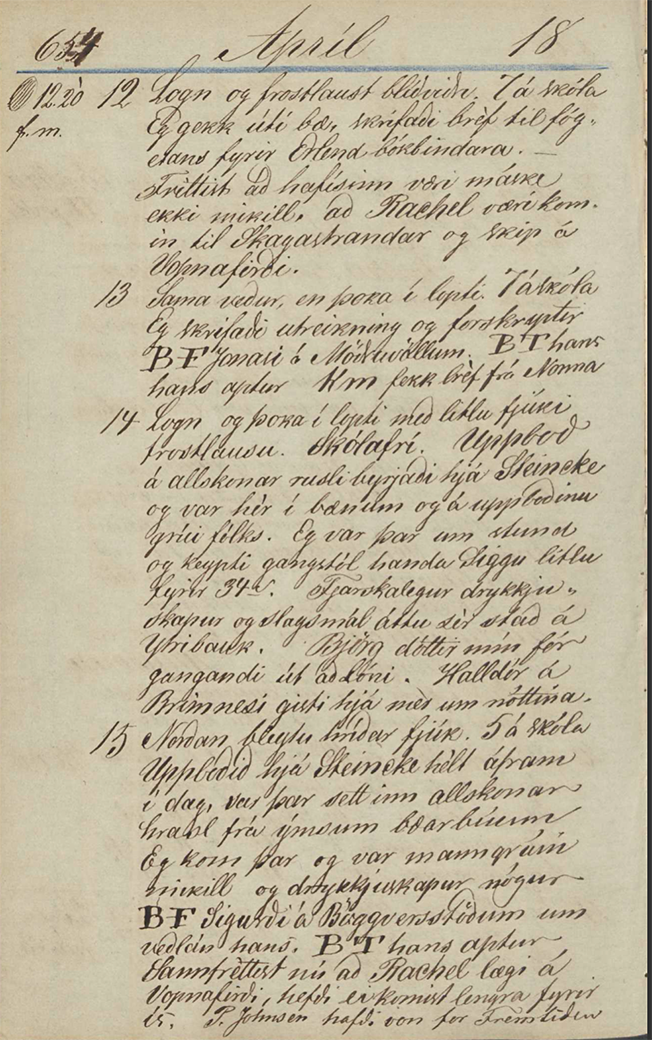 654 Apríl 18
12.20 12 Logn og frostlaust blíðviðri. 7 á skóla
f.m. Eg gekk úti bæ, skrifaði bréf til fóg-
etans fyrir Erlend bókbindara. —
Fréttist að hafísinn væri máske
ekki mikill, að Rachel væri kom-
in til Skagastrandar og skip á
Vopnafirði.
13 Sama veður, en þoka í lopti. 7 á skóla
Eg skrifaði utreikning og forskryptir
BF Jonasi á Möðruvöllum. BT hans
hans aptur Km fekk bréf frá Nonna
14 Logn og þoka í lopti með litlu fjúki
frostlausu. Skólafrí. Uppboð
á allskonar rusli byrjaði hjá Steincke
og var hér í bænum og á uppboðinu
grúi fólks. Eg var þar um stund
og keypti gangstól handa Siggu litlu
fyrir 34 s. Fjarskalegur drykkju-
skapur og slagsmál áttu sér stað á
Ytribauk. Björg dóttir mín fór
gangandi út að Lóni. Halldór á
Brimnesi gisti hjá mér um nóttina.
15 Norðan bleytu hríðar fjúk. 5 á skóla
Uppboðið hjá Steincke hélt áfram
í dag, var þar sett inn allskonar
hrasl frá ýmsum bæarbúum
Eg kom þar og var manngrúin
mikill og drykkjuskapur nógur
BF Sigurði á Böggversstöðum um
veðlán hans. BT hans aptur
Sannfréttist nú að Rachel lægi á
Vopnafirði, hefði ei komist lengra fyrir
ís. P. Johnsen hafði von for Fremtiden